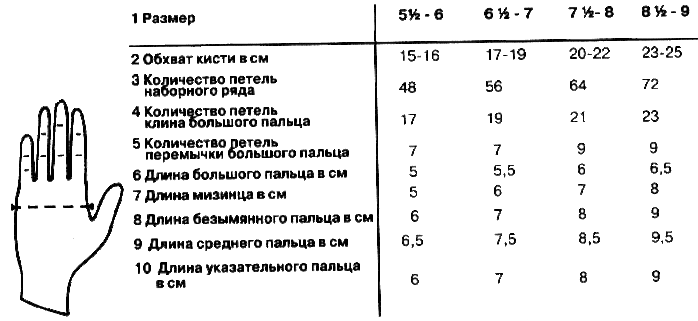 1 Размер 5½ - 6 6 ½ - 7 7 ½- 8 8 ½ - 9
2 Обхват кисти в см 15-16 17-19 20-22 23-25
3 Количество петель
наборного ряда 48 56 64 72
4 Количество петель
клина большого пальца 17 19 21 23
5 Количество петель
перемычки большого пальца 7 7 9 9
6 Длина большого пальца в см 5 5,5 6 6,5
7 Длина мизинца в см 5 6 7 8
8 Длина безымянного пальца в см 6 7 8 9
9 Длина среднего пальца в см 6,5 7,5 8,5 9,5
10 Длина указательного пальца
в см 6 7 8 9